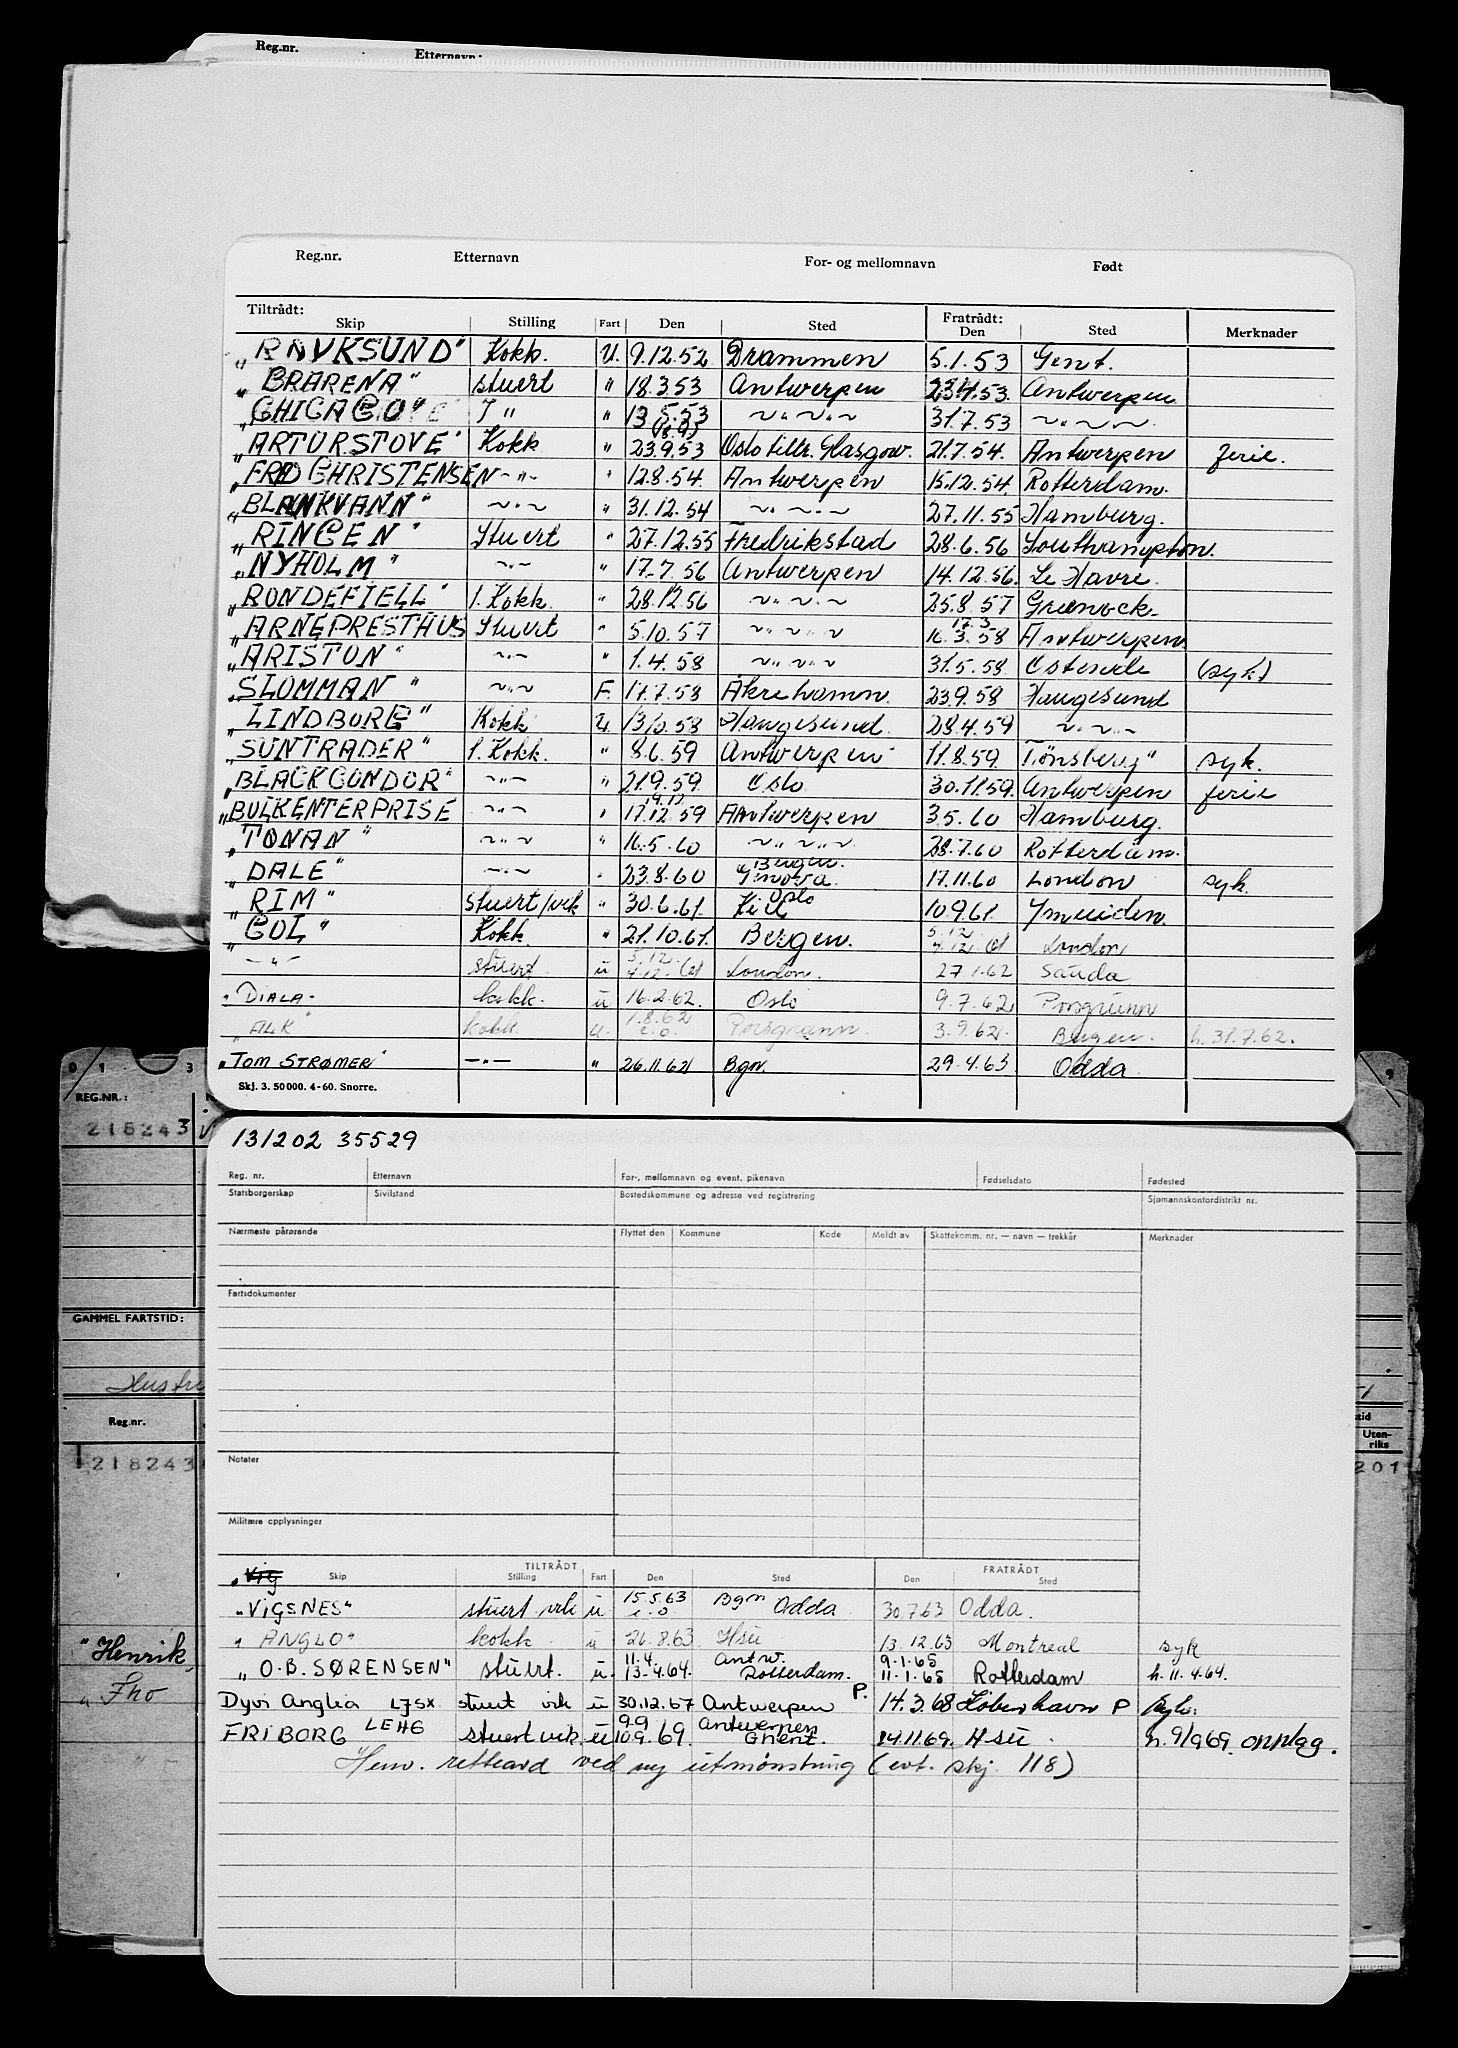 Reg.nr. Etternavn:
Reg.nr. Etternavn For- og mellomnavn Født
Tiltrådt: Fratrådt:
Skip Stilling Fart Den Sted Den Sted Merknader
"RAVKSUND" Kokk. U. 9.12.52 Drammen 5.1.53 Gent.
"BRARENA" stuert " 18.3.53 Antwerpen 23.4.53. Antwerpen
"CHICAGO" " 13.5.53 ~"~"~ 31.7.53 ~"~"~
"ARTURSTOVE" Kokk " 23.9.53 Oslo tillr. Glasgow. 21.7.54. Antwerpen ferie.
"FRED CHRISTENSEN ~"~ " 12.8.54. Antwerpen 15.12.54. Rotterdam.
"BLANKVANN" ~"~ " 31.12.54 ~"~"~ 27.11.55 Hamburg.
"RINGEN" Stuert " 27.12.55 Fredrikstad 28.6.56 Southampton.
"NYHOLM" ~"~ " 17.7.56 Antwerpen 14.12.56. Le Havre.
"RONDEFJELL" 1. Kokk. " 28.12.56 ~"~"~ 25.8.57 Greenock.
17.3
"ARNEPRESTHUS Stuert " 5.10.57 ~"~"~ 16.3.58 Antwerpen.
"ARISTON" ~"~ " 1.4.58 ~"~"~ 31.5.58 Ostende (syk)
"SLOMMAN" ~"~ F. 17.7.58 Åkrehamn. 23.9.58 Haugesund
"LINDBORG" Kokk U. 13/10.58 Haugesund. 28.4.59 ~"~"~
"SUNTRADER" 1. Kokk. " 8.6.59 Antwerpen 11.8.59. Tønsberg" syk.
"BLACKCONDOR" ~"~ " 21.9.59. Oslo 30.11.59. Antwerpen ferie
"BULKENTERPRISE ~"~ " 17.12.59 Antwerpen 3.5.60 Hamburg.
"TONAN" ~"~ " 16.5.60 ~"~"~ 28.7.60 Rotterdam.
Bergen.
"DALE" ~"~ " 23.8.60 Genova. 17.11.60 London syk.
Oslo
"RIM" stuert/vik " 30.6.61. Kiel 10.9.61. Ymuiden.
"GOL" Kokk. " 21.10.61. Bergen. 5.12. 4.12.61 London
~"~ stuert. u 5.12. 4.12.61 London. 27.1.62 Sauda
"DIALA" kokk. u 16.2.62. Oslo 9.7.62 Porsgrunn
1.8.62
"ALK" kokk. u. e.o. Porsgrunn. 3.9.62. Bergen. h. 31.7.62.
"TOM STRØMER" ~"~ " 26.11.62 Bgn. 29.4.63 Odda
Skj. 3. 50 000. 4-60. Snorre.
0 1 3 9
REG.NR.:
218243
GAMMEL FARTSTID:
Reg.nr.
Uten-
riks
218243
201
"Henrik
131202 35529
Reg. nr. Etternavn For-, mellomnavn og event. pikenavn Fødselsdato Fødested
Statsborgerskap Sivilstand Bostedskommune og adresse ved registrering Sjømannskontordistrikt nr.
Nærmeste pårørende Flyttet den Kommune Kode Meldt av Skattekomm. nr. — navn — trekkår Merknader
Fartsdokumenter
Notater
Militære opplysninger
TILTRÅDT FRATRÅDT
Vig Skip Stilling Fart Den Sted Den Sted
"VIGSNES" stuert vik u 15.5.63 e.o. Bgn Odda 30.7.63 Odda.
"ANGLO" kokk u 26.8.63 Hsu 13.12.63 Montreal syk
11.4. Antw. 9.1.65
"O.B. SØRENSEN" stuert. u. 13.4.64. Rotterdam. 11.1.65 Rotterdam h. 11.4.64.
Dyvi Anglia LJSX stuert vik u 30.12.67 Antwerpen P. 14.3.68 København P syk.
9.9 Antwerpen
FRIBORG LEHG stuert vik. u 10.9.69. Ghent. 14.11.69. Hsu. h. 9/9 69. opplag.
Henv. retteard ved ny utmønstring (evt. skj. 118)